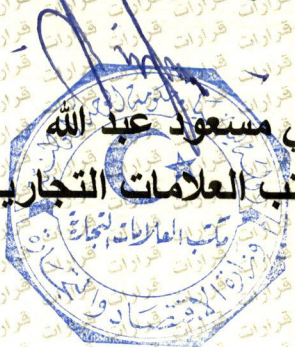 ي مسعود عبد الله
تب العلامات التجاري
حكومة الوحدة
مكتب العلامات التجارية
وزارة الاقتصاد والتجارة
قرارات